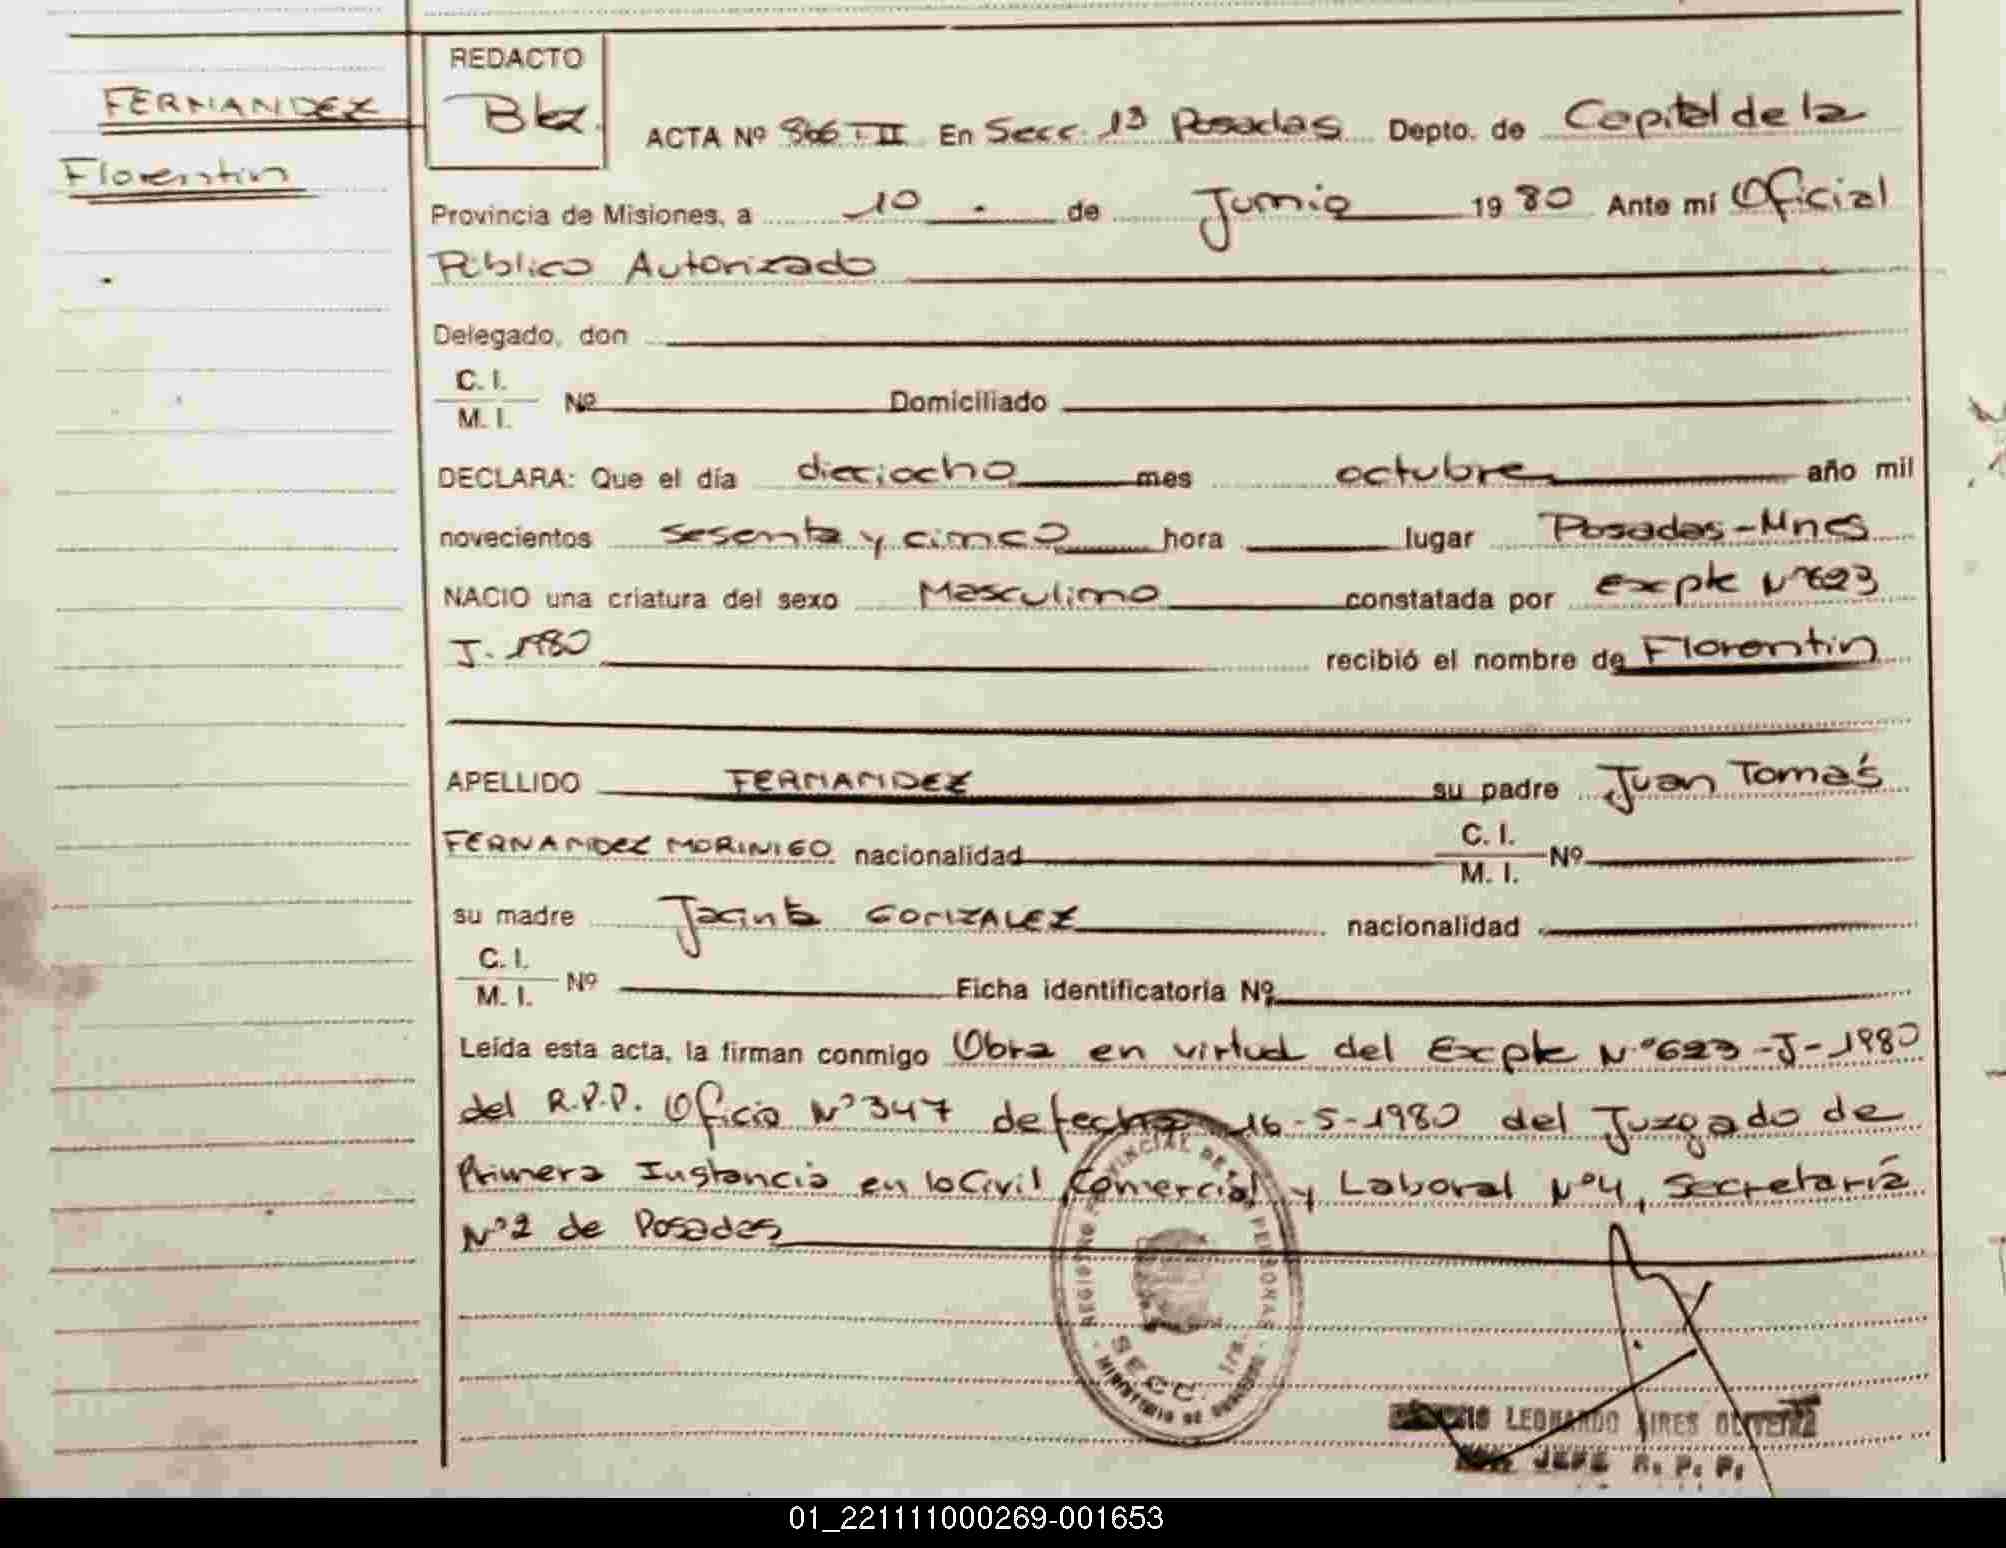 FERNANDEZ
Florentin
REDACTO
ACTA Nº 866-II En Secc. 1ª Posadas Depto. de Capital de la
Provincia de Misiones, a 10 de Junio 1980 Ante mí Oficial
Público Autorizado
Delegado, don
C. I.
M. I. Nº Domiciliado
DECLARA: Que el día dieciocho mes octubre año mil
novecientos sesenta y cinco hora lugar Posadas-Mnes
NACIO una criatura del sexo Masculino constatada por Expte Nº623
J-1980 recibió el nombre de Florentin
APELLIDO FERNANDEZ su padre Juan Tomás
FERNANDEZ MORINIGO nacionalidad C. I. M. I. Nº
su madre Jacinta GONZALEZ nacionalidad
C. I.
M. I. Nº Ficha identificatoria Nº
Leída esta acta, la firman conmigo Obra en virtud del Expte Nº623-J-1980
del R.P.P. Oficio Nº347 de fecha 16-5-1980 del Juzgado de
Primera Instancia en lo Civil, Comercial y Laboral Nº4, Secretaría
Nº2 de Posadas
REGISTRO PROVINCIAL DE PERSONAS
SECC. 1ª
MINISTERIO DE GOBIERNO
LEONARDO AIRES OLIVEIRA
JEFE R. P. P.
01_221111000269-001653